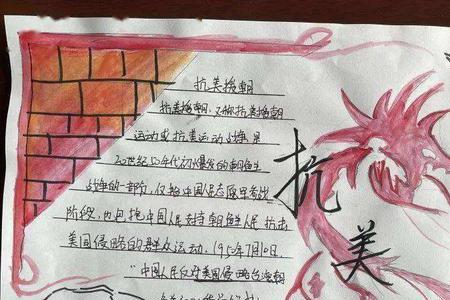 抗美援朝
抗美援朝,又称抗美援朝
运动或抗美运动战争,是
20世纪50年代初爆发的朝鲜
战争的一部分,仅指中国人民志愿军参战
阶段,也包括中国人民支持朝鲜人民抗击
美国侵略的群众运动。1950年7月10日
"中国人民反对美国侵略台湾朝
抗
美